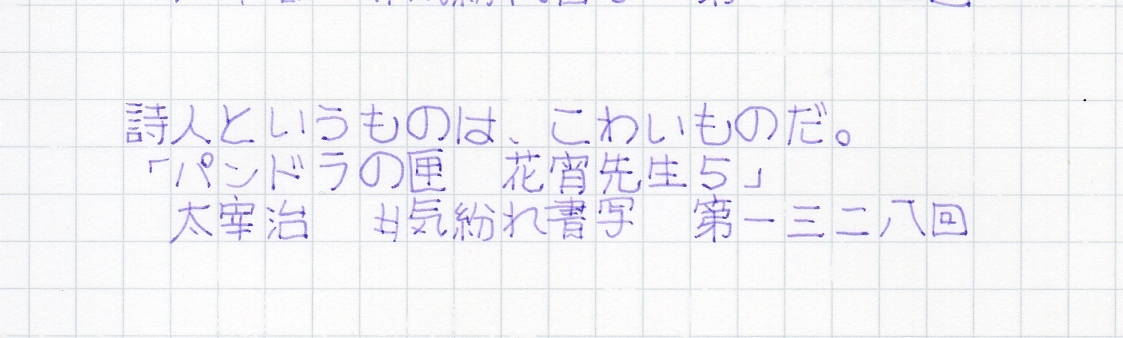 詩人というものは、こわいものだ。
「パンドラの匣　花宵先生５」
太宰治　#気紛れ書写　第一三二八回